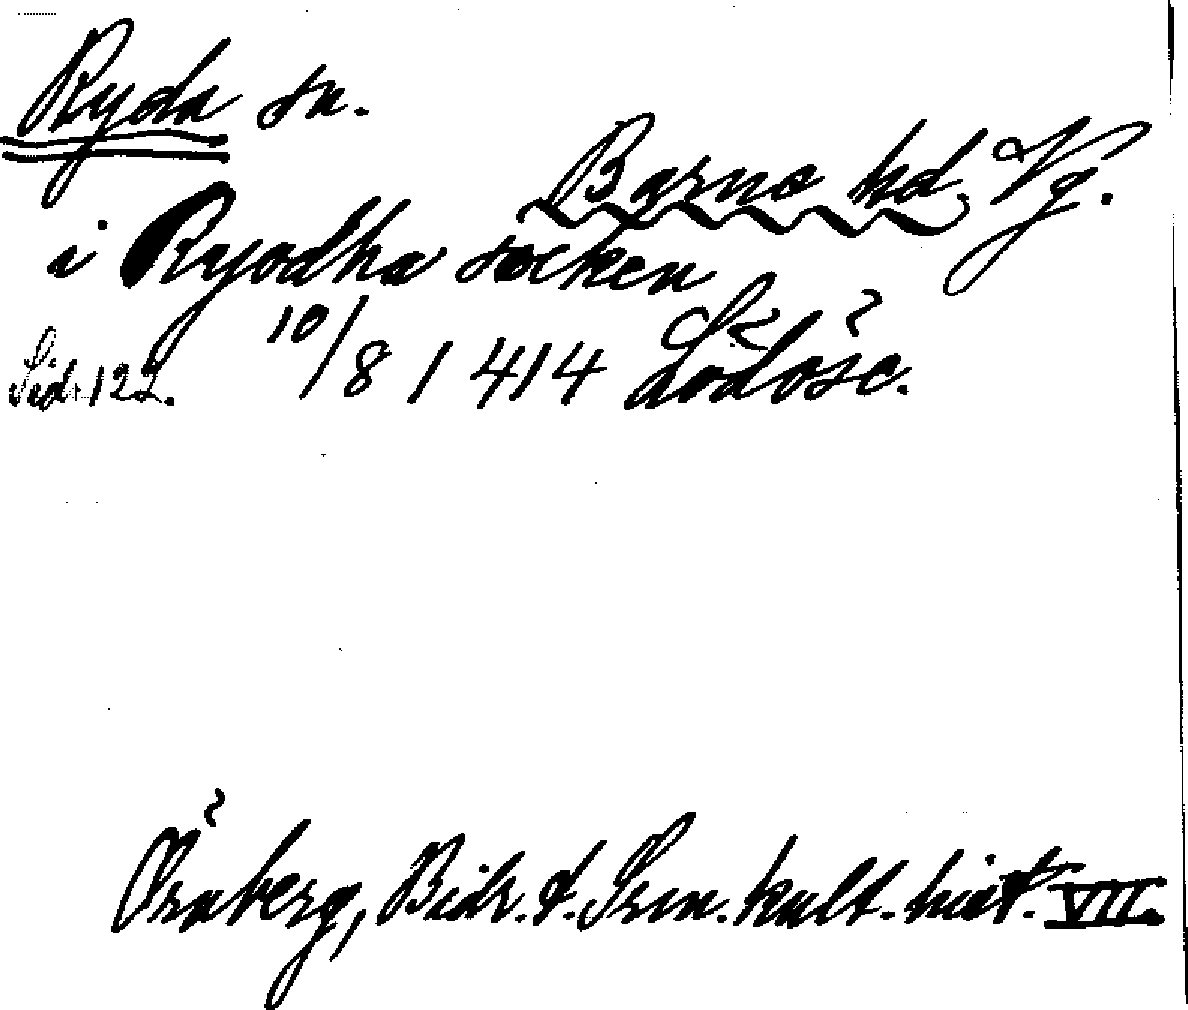 Ryda sn.
Barne hd. Vg.
i Ryodha socken
10/8 1414 Lödöse.
Sid. 122.
Örnberg, Bidr. t. Sven. kult. hist. VII.